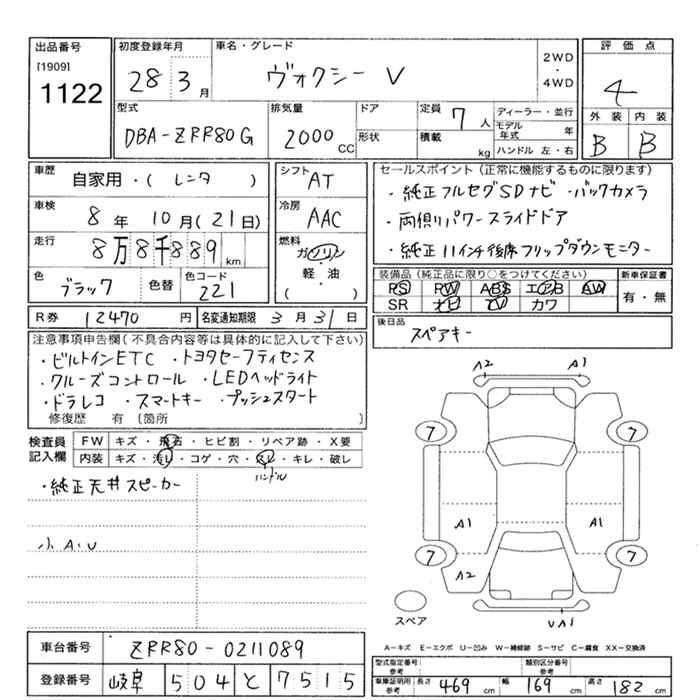 出品番号
[1909]
1122
初度登録年月
28 3月
車名・グレード
ヴォクシー V
2WD
・
4WD
評価点
4
外装 内装
B B
型式
DBA-ZRR80G
排気量
2000 CC
ドア
形状
定員 7人
積載 kg
ディーラー・並行
モデル年式 年
ハンドル 左・右
車歴
自家用・( レンタ )
車検
8年 10月(21日)
走行
8万8千889 km
色
ブラック
色替
色コード
221
シフト
AT
冷房
AAC
燃料
ガソリン
・
軽・油
( )
セールスポイント(正常に機能するものに限ります)
・純正フルセグSDナビ ・バックカメラ
・両側パワースライドドア
・純正11インチ後席フリップダウンモニター
装備品(純正品に限り○をつけてください)
PS PW ABS エアB AW
SR ナビ TV カワ
新車保証書
有・無
R券 12470円
名変通知期限 3月31日
後日品
スペアキー
注意事項申告欄(不具合内容等は具体的に記入して下さい)
・ビルトインETC ・トヨタセーフティセンス
・クルーズコントロール ・LEDヘッドライト
・ドラレコ ・スマートキー ・プッシュスタート
修復歴 有 〔箇所 〕
検査員記入欄
FW キズ・飛石・ヒビ割・リペア跡・X要
内装 キズ・汚レ・コゲ・穴・スレ・キレ・破レ
ハンドル
・純正天井スピーカー
小A.U
A2 A1
7 7
A1 A1
7 7
A2
スペア
UA1
A−キズ E−エクボ U−凹み W−補修跡 S−サビ C−腐食 XX−交換済
車台番号 ZRR80-0211089
登録番号 岐阜 504 と 7515
型式指定番号 参考
類別区分番号 参考
車庫証明用 参考
長さ 469 cm 幅 169 cm 高さ 182 cm